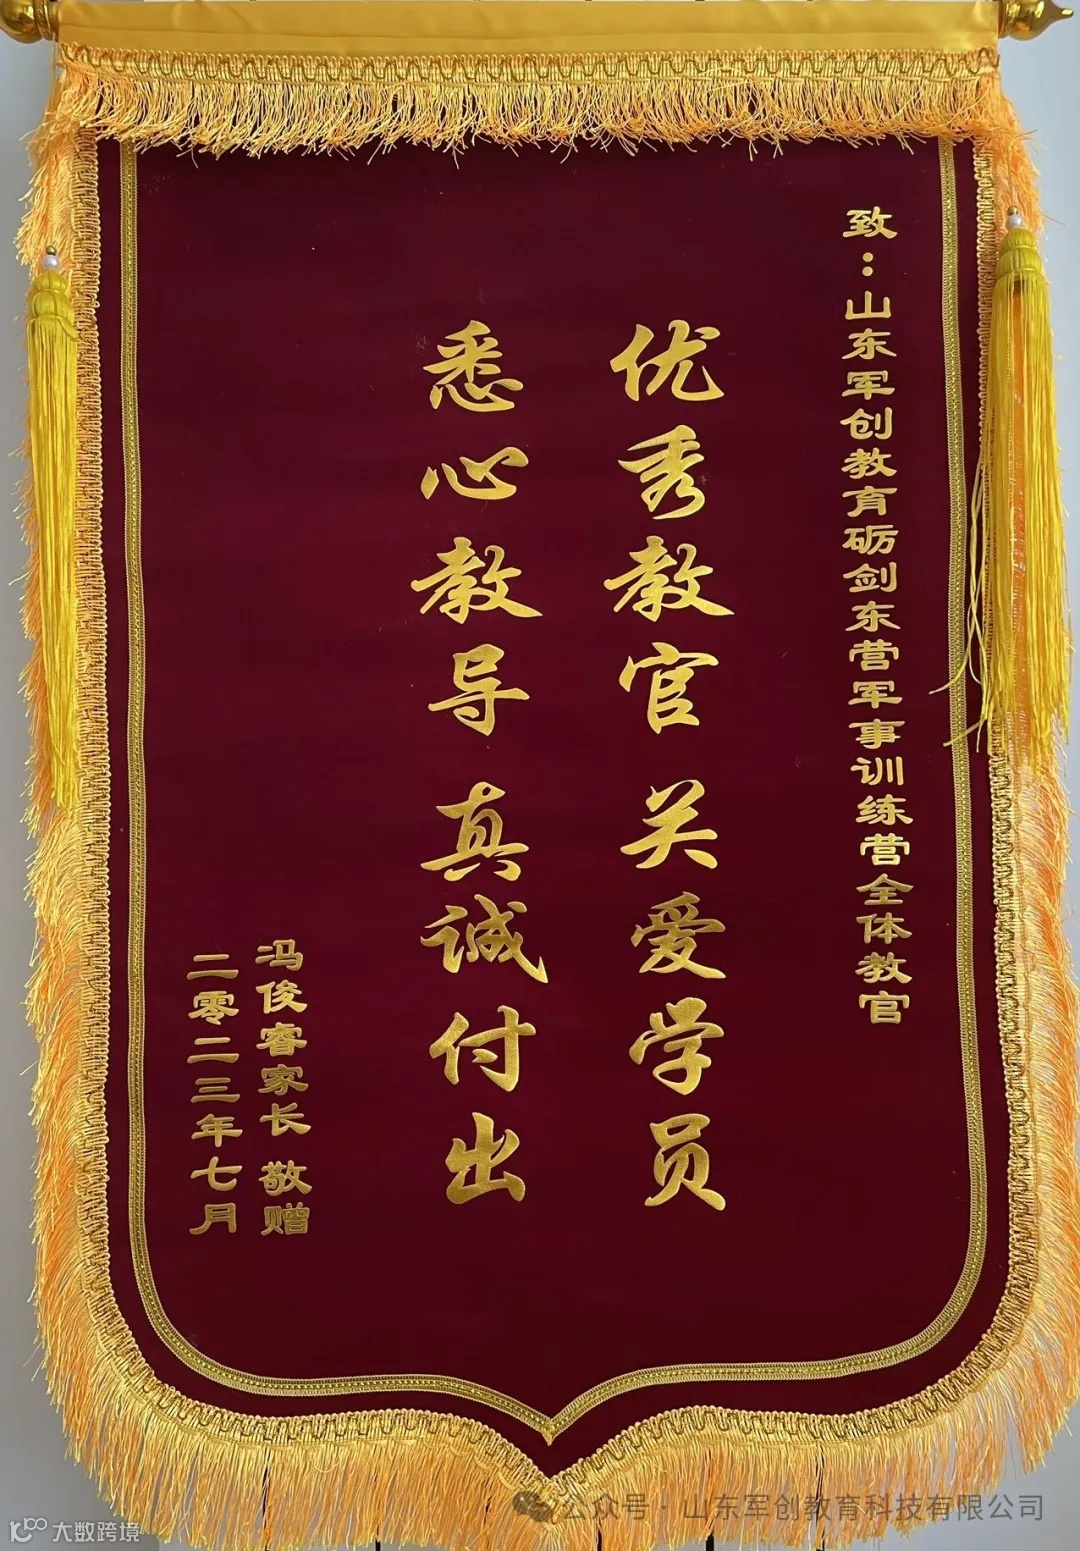 致：山东军创教育砺剑东营军事训练营全体教官
优秀教官 关爱学员
悉心教导 真诚付出
冯俊睿家长 敬赠
二零二三年七月
公众号·山东军创教育科技有限公司
大数跨境